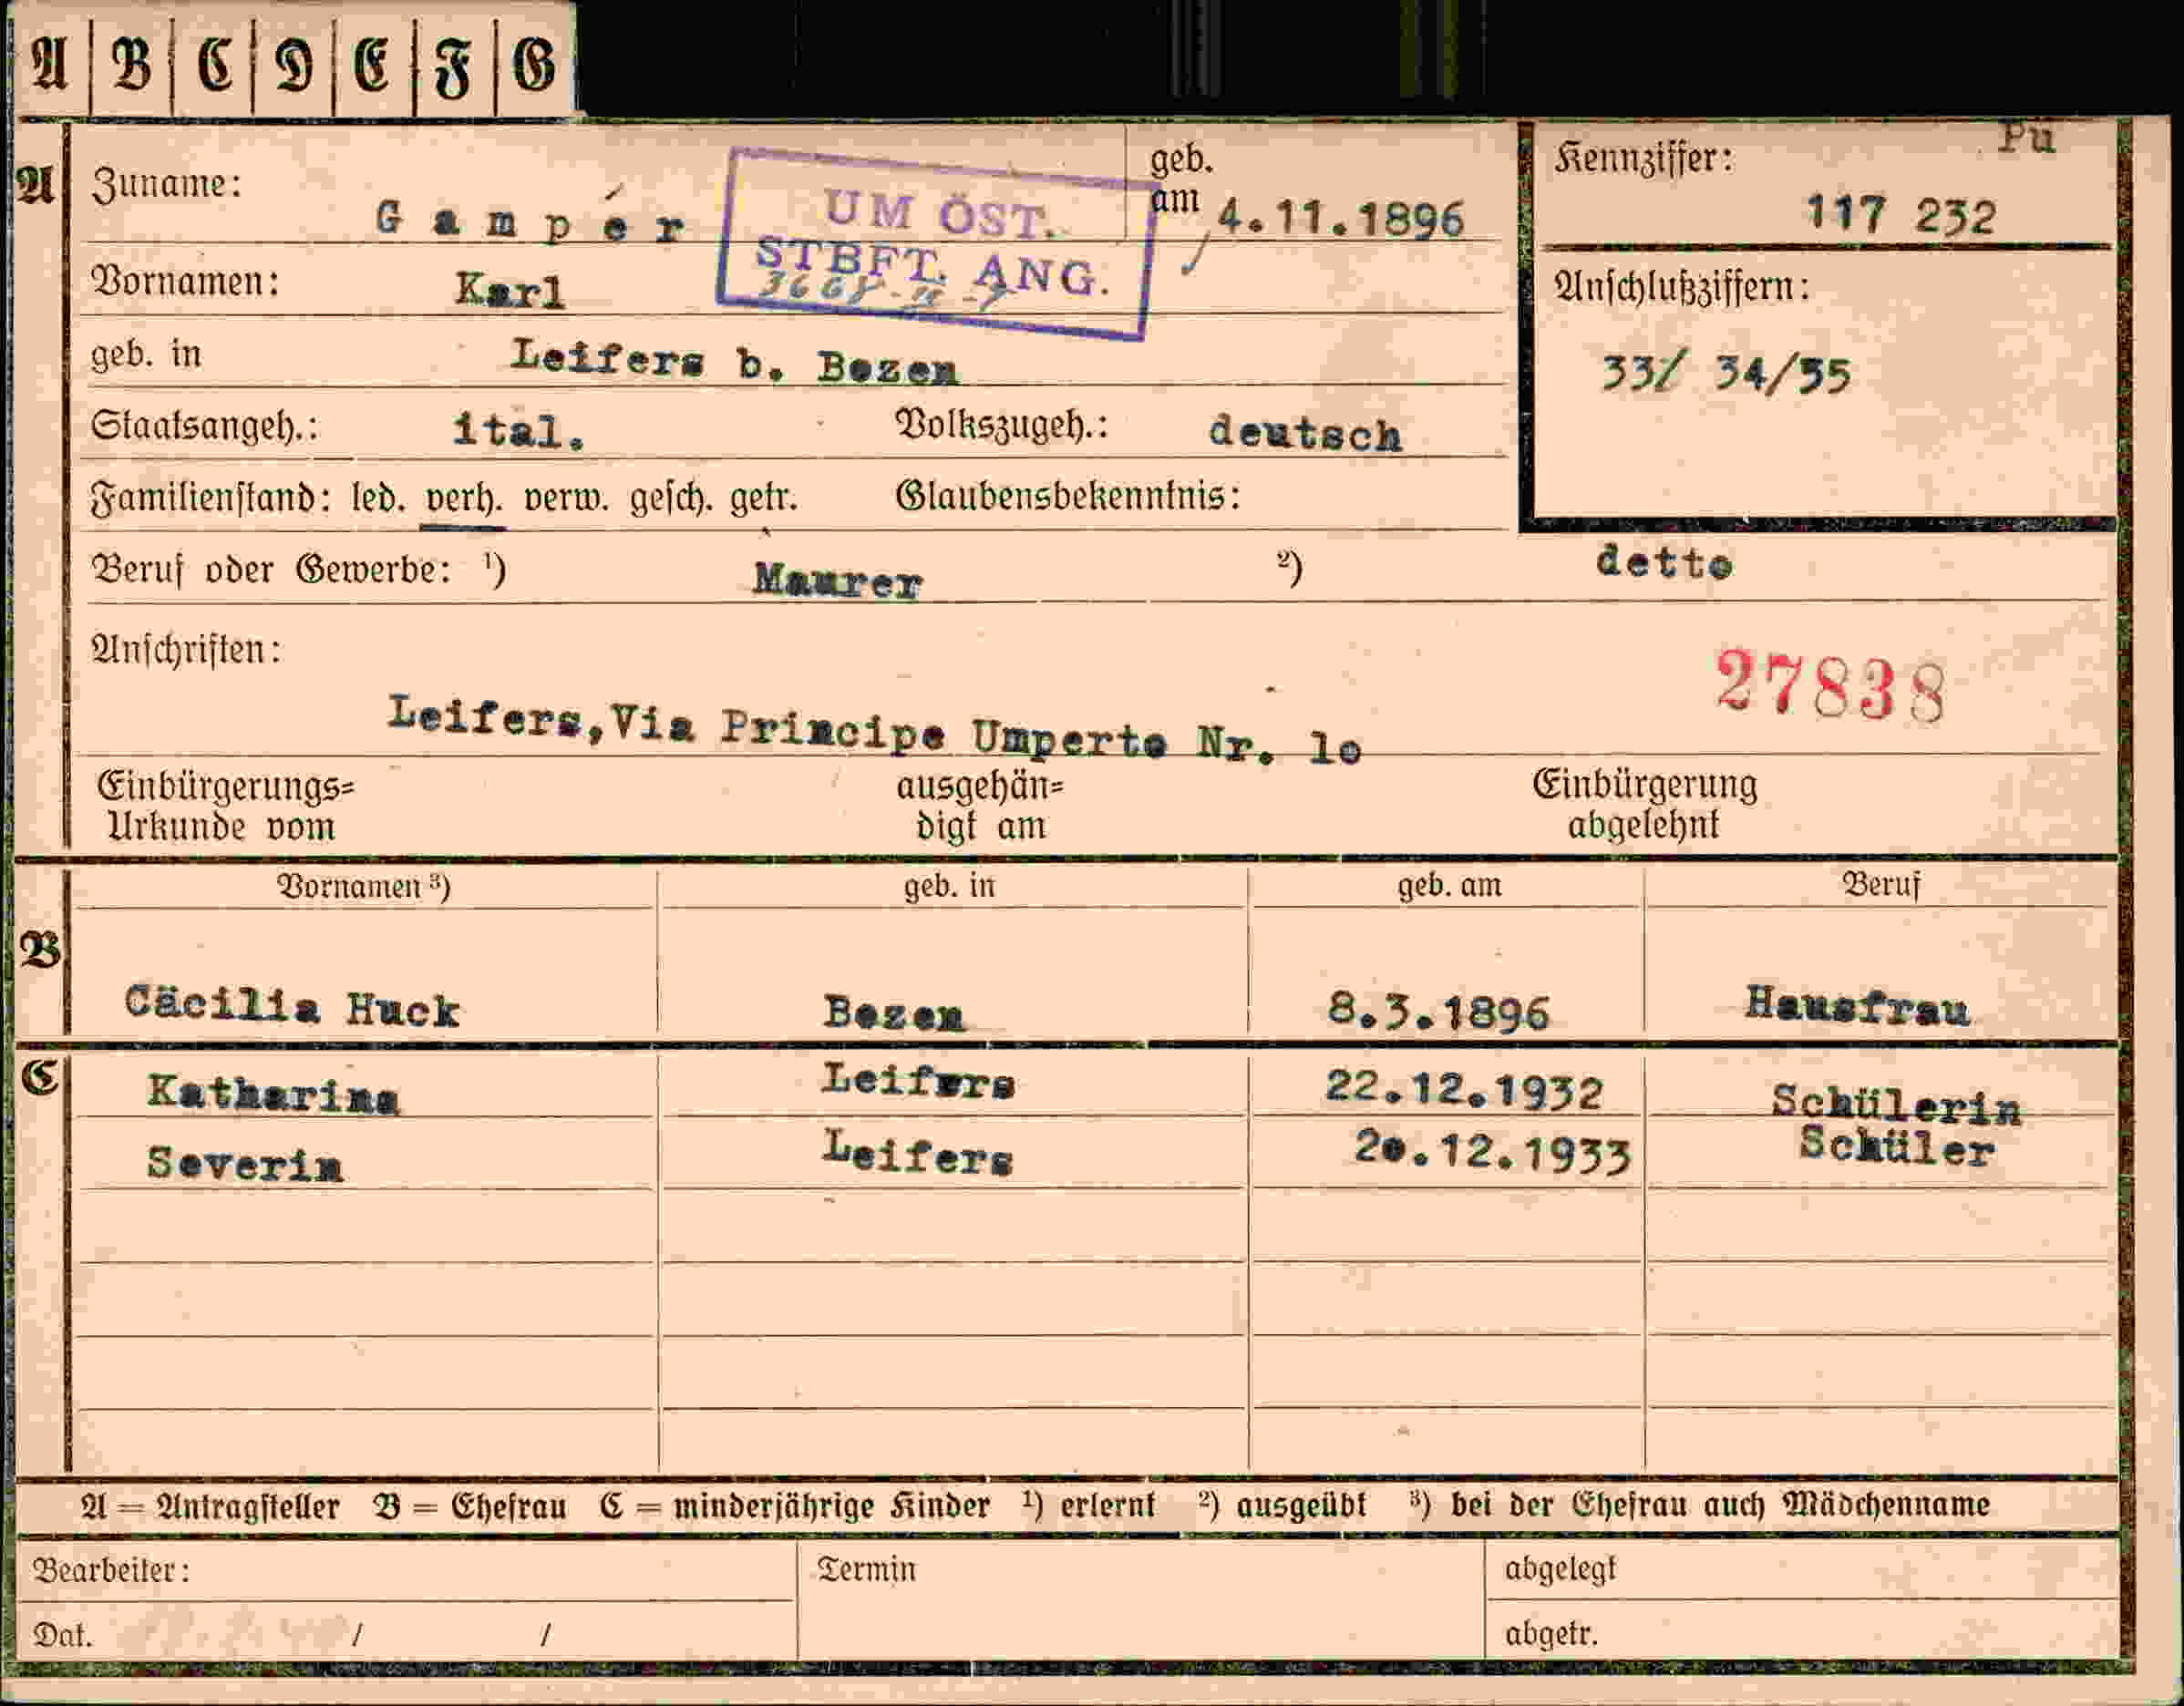 A B C D E F G
Pu
A Zuname: Gamper
UM ÖST.
STBFT. ANG.
geb. am 4.11.1896
Kennziffer: 117 232
Vornamen: Karl
Anschlußziffern:
33/ 34/35
geb. in Leifers b. Bozen
Staatsangeh.: ital. Volkszugeh.: deutsch
Familienstand: led. verh. verw. gesch. getr. Glaubensbekenntnis:
Beruf oder Gewerbe: ¹) Maurer ²) detto
Anschriften:
27838
Leifers,Via Principe Umperto Nr. 1o
Einbürgerungs= ausgehän= Einbürgerung
Urkunde vom digt am abgelehnt
Vornamen ³) geb. in geb. am Beruf
B Cäcilia Huck Bozen 8.3.1896 Hausfrau
C Katharina Leifers 22.12.1932 Schülerin
Severin Leifers 2o.12.1933 Schüler
A = Antragsteller B = Ehefrau C = minderjährige Kinder ¹) erlernt ²) ausgeübt ³) bei der Ehefrau auch Mädchenname
Bearbeiter: Termin abgelegt
Dat. / / abgetr.